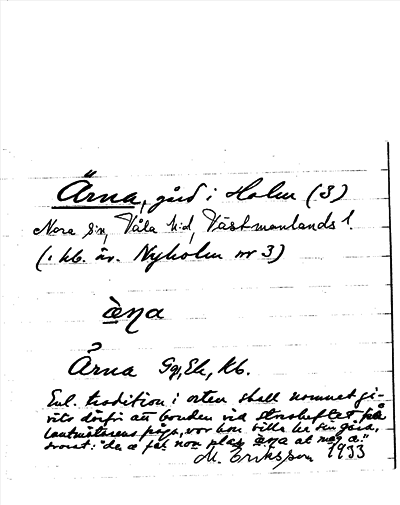 Ärna, gård i Holm (3)
Nora sn, Våla hd, Västmanlands l.
(i kb. äv. Nyholm nr 3)
æ̀ṇa
Ärna Gg, Ek, Kb.
Enl. tradition i orten skall namnet gi-
vits därför att bonden vid storskiftet på
lantmätarens fråga, var han ville ha sin gård,
svarat: "de æ fäl non plas
M. Eriksson 1933